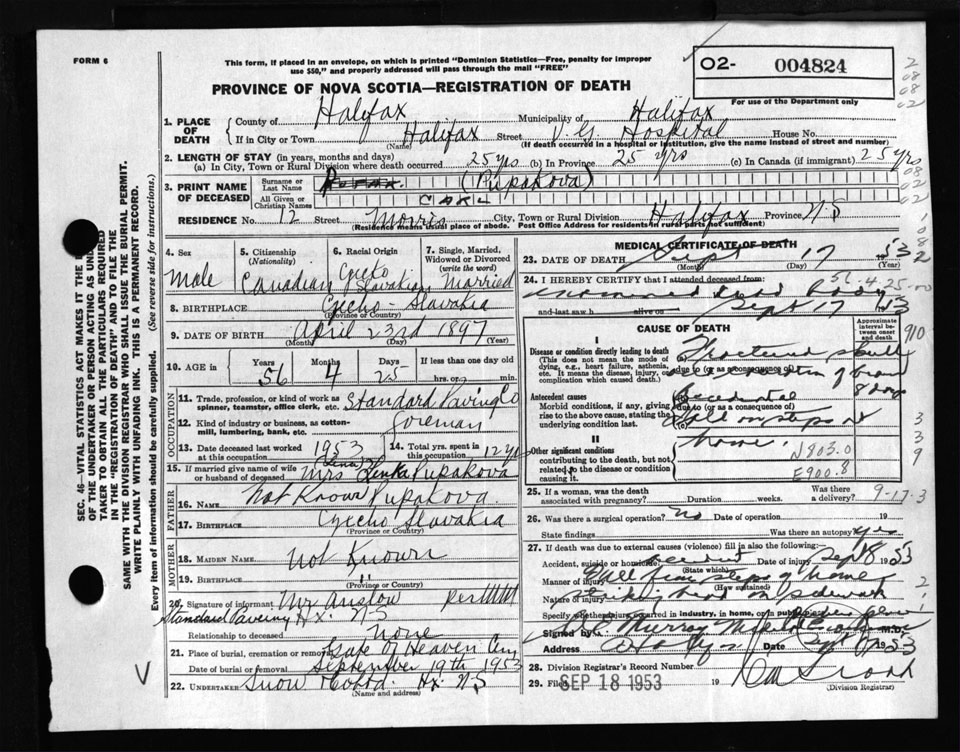 FORM 6
This form, if placed in an envelope, on which is printed "Dominion Statistics—Free, penalty for improper
use $50," and properly addressed will pass through the mail "FREE"
PROVINCE OF NOVA SCOTIA—REGISTRATION OF DEATH
02- 004824
For use of the Department only
2
08
08
02
SEC. 46 VITAL STATISTICS ACT MAKES IT THE
OF THE UNDERTAKER OR PERSON ACTING AS UND
TAKER TO OBTAIN ALL THE PARTICULARS REQUIRED
IN THE "REGISTRATION OF DEATH" AND TO FILE THE
SAME WITH THE DIVISION REGISTRAR WHO SHALL ISSUE THE BURIAL PERMIT.
WRITE PLAINLY WITH UNFADING INK. THIS IS A PERMANENT RECORD.
Every item of information should be carefully supplied. (See reverse side for instructions.)
1. PLACE OF DEATH
County of Halifax Municipality of Halifax
If in City or Town Halifax Street V.G. Hospital House No.
(Name) (If death occurred in a hospital or institution, give the name instead of street and number)
2. LENGTH OF STAY (in years, months and days)
(a) In City, Town or Rural Division where death occurred 25 yrs (b) In Province 25 yrs (c) In Canada (if immigrant) 25 yrs
3. PRINT NAME OF DECEASED
Surname or Last Name (Pupakova)
All Given or Christian Names
RESIDENCE No. 12 Street Morris City, Town or Rural Division Halifax Province N.S
(Residence means usual place of abode. Post Office Address for residents in rural parts not sufficient)
4. Sex Male
5. Citizenship (Nationality) Canadian
6. Racial Origin Czeko Slovakian
7. Single, Married, Widowed or Divorced (write the word) Married
8. BIRTHPLACE Czecho-Slavakia
(Province or Country)
9. DATE OF BIRTH April 23rd 1897
(Month) (Day) (Year)
10. AGE in Years 56 Months 4 Days 25 If less than one day old hrs. or min.
OCCUPATION
11. Trade, profession, or kind of work as spinner, teamster, office clerk, etc. Standard Paving Co
12. Kind of industry or business, as cotton-mill, lumbering, bank, etc. foreman
13. Date deceased last worked at this occupation 1953
14. Total yrs. spent in this occupation 12 yrs
15. If married give name of wife or husband of deceased Mrs Pupakova
FATHER
16. Name Not Known Pupakova
17. Birthplace Czecho Slovakia
(Province or Country)
MOTHER
18. Maiden Name Not Known
19. Birthplace "
(Province or Country)
20. Signature of informant Mr Anslow
Standard Paving Hx. N.S
Relationship to deceased none
21. Place of burial, cremation or removal Gate of Heaven Cty
Date of burial or removal September 19th 1953
22. Undertaker Snow Hx. N.S
(Name and address)
MEDICAL CERTIFICATE OF DEATH
23. DATE OF DEATH Sept 17 1953
(Month) (Day)
24. I HEREBY CERTIFY that I attended deceased from
and last saw h alive on Sept 17 1953
CAUSE OF DEATH
Approximate interval between onset and death
I
Disease or condition directly leading to death
(This does not mean the mode of dying, e.g., heart failure, asthenia, etc. It means the disease, injury, or complication which caused death.)
Fractured skull
due to (or as a consequence of) of brain
8 days
Antecedent causes
Morbid conditions, if any, giving rise to the above cause, stating the underlying condition last.
Accidental
due to (or as a consequence of)
on steps at
home.
II
Other significant conditions
contributing to the death, but not related to the disease or condition causing it.
N803.0
E900.8
910
3
3
9
25. If a woman, was the death associated with pregnancy? Duration weeks. Was there a delivery? 9-17-3
26. Was there a surgical operation? No Date of operation 19
State findings Was there an autopsy? Yes
27. If death was due to external causes (violence) fill in also the following:
Accident, suicide or homicide? accident Date of injury Sept 8 1953
(State which)
Manner of injury Fall from steps of home
(How sustained)
Nature of injury head on sidewalk
2
Specify whether injured in industry, in home, or in public place
Signed by Murray M.D.
Address 1953
28. Division Registrar's Record Number
29. Filed SEP 18 1953 19
(Division Registrar)
V